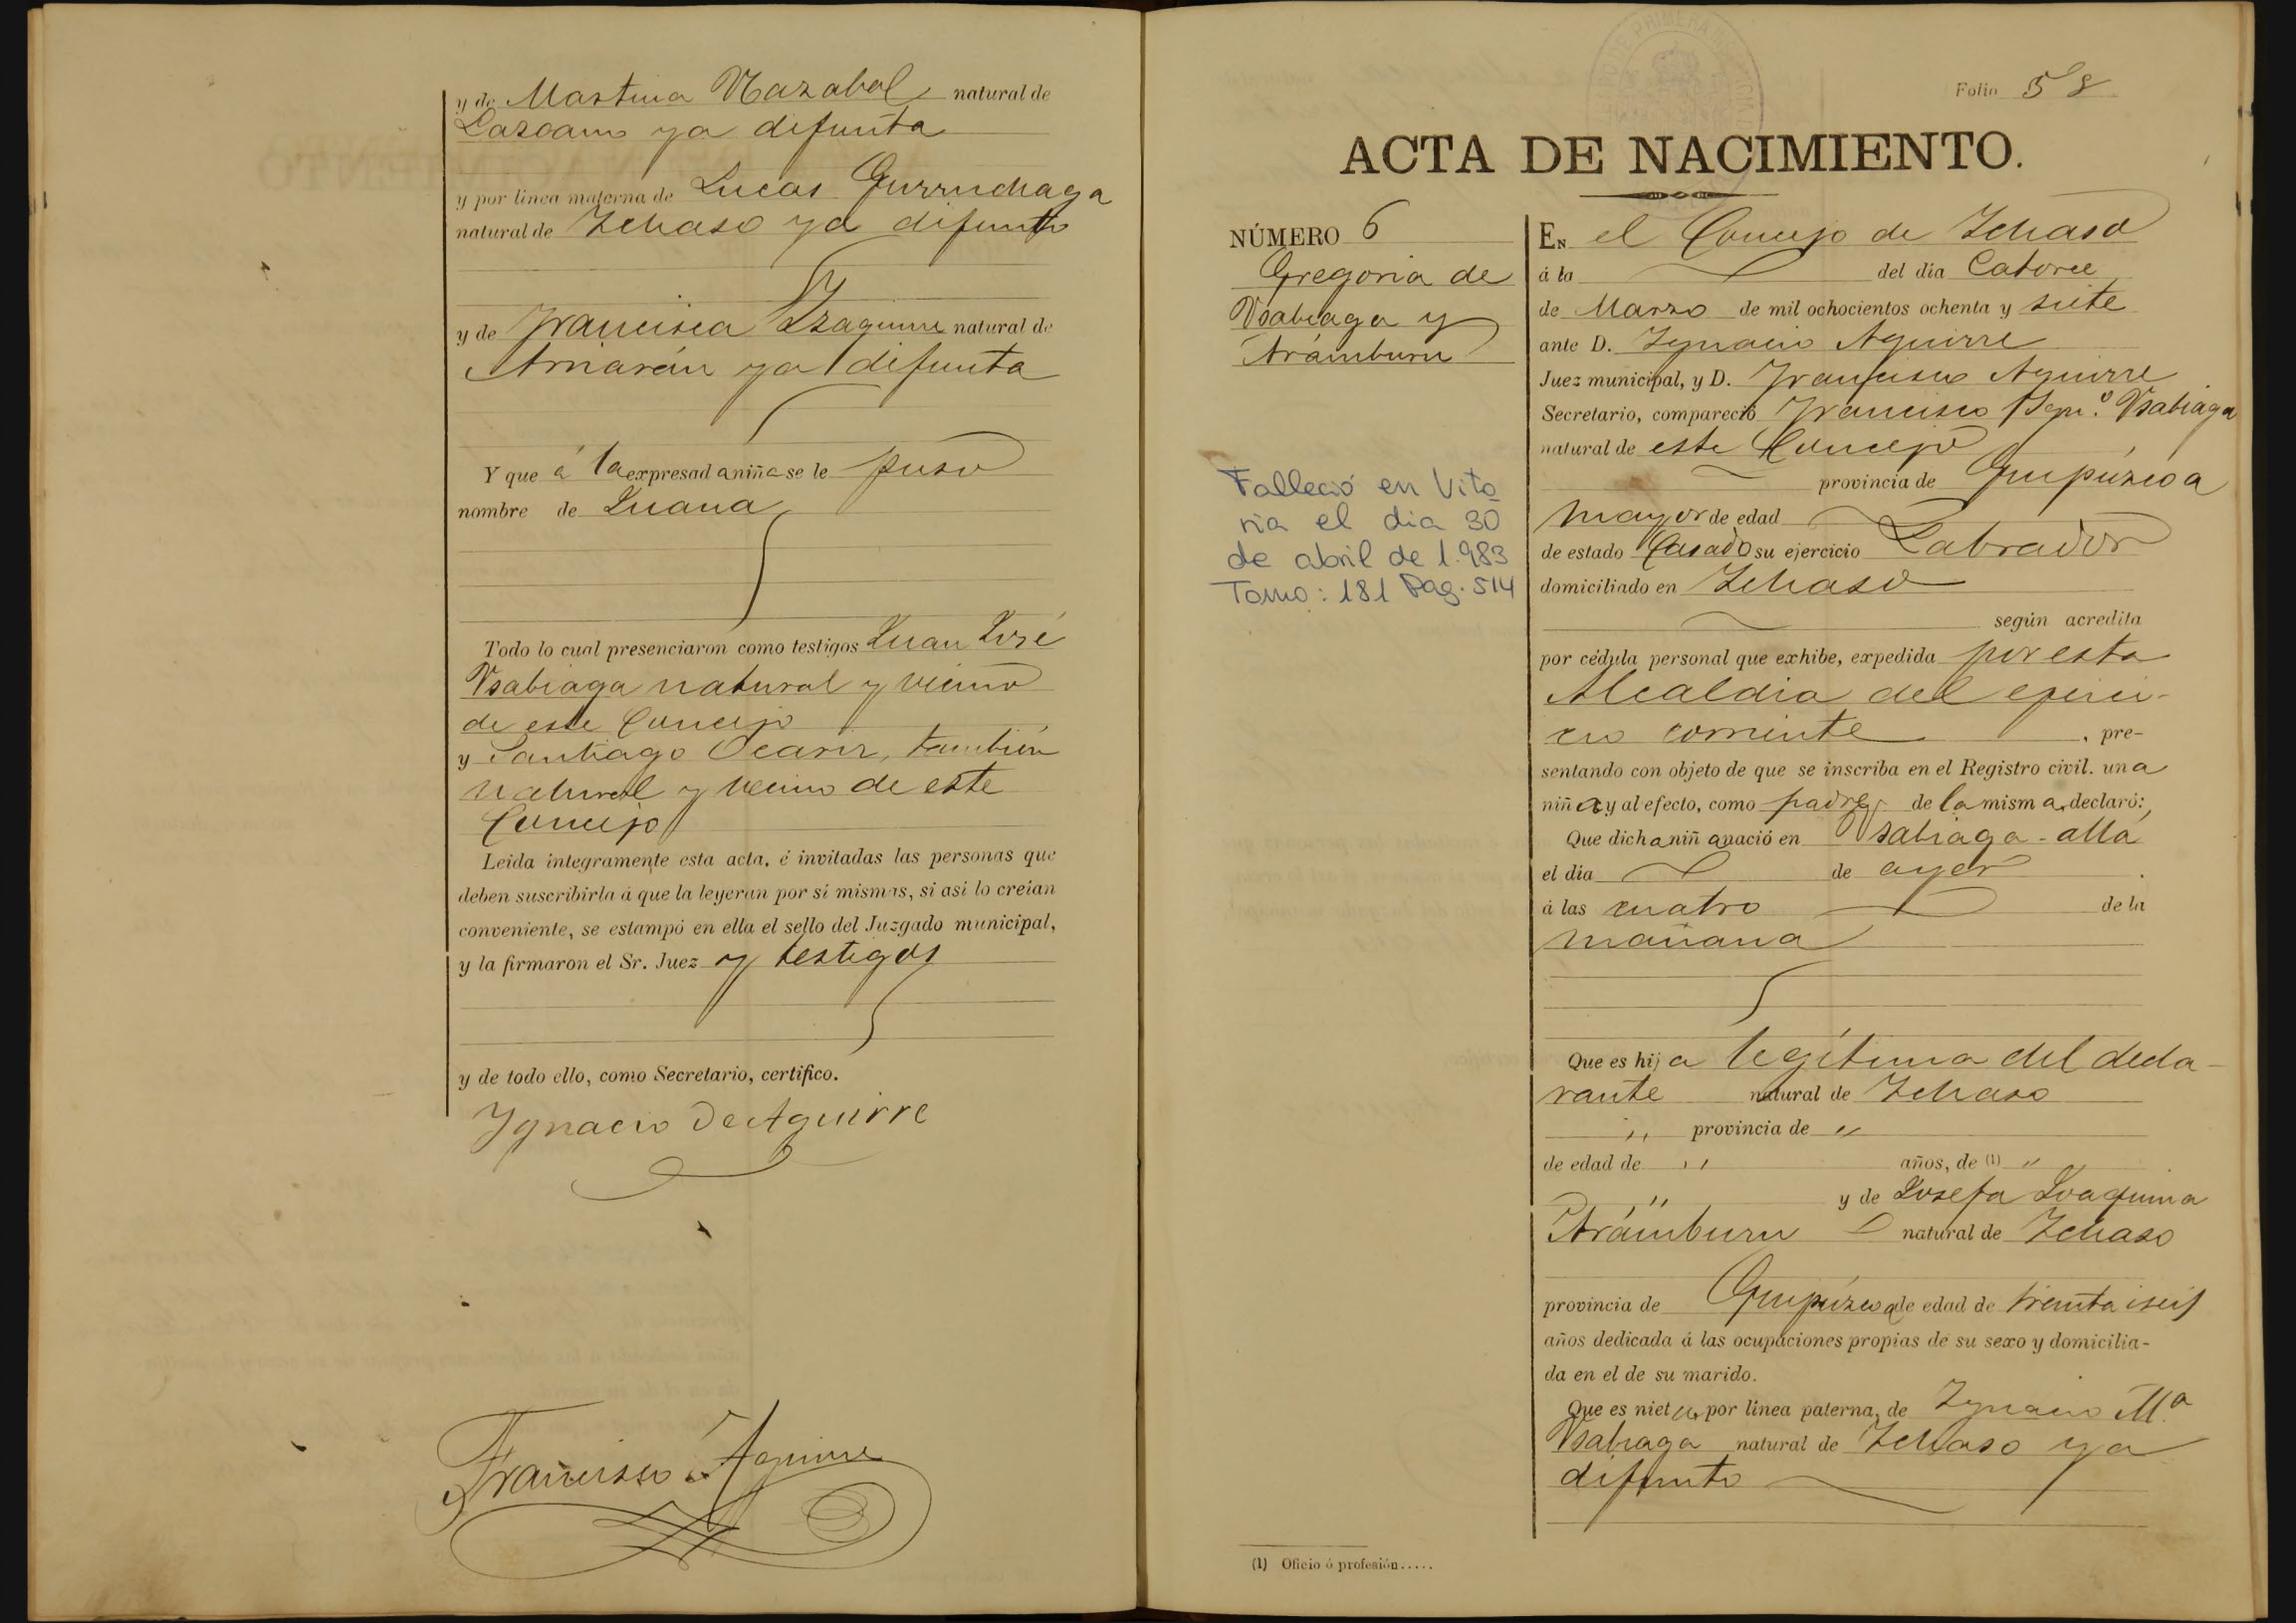 y de Martina Nazabal natural de
Lazcano ya difunta
y por linea materna de Lucas Gurruchaga
natural de Ichaso ya difunto
y de Francisca Izaguirre natural de
Amarán ya difunta
Y que á la expresada niña se le puso
nombre de Juana
Todo lo cual presenciaron como testigos Juan José
Usabiaga natural y vecino
de este Concejo
y Santiago Ocariz, también
natural y vecino de este
Concejo
Leida íntegramente esta acta, é invitadas las personas que
deben suscribirla á que la leyeran por sí mismas, si así lo creían
conveniente, se estampó en ella el sello del Juzgado municipal,
y la firmaron el Sr. Juez y testigos
y de todo ello, como Secretario, certifico.
Ygnacio de Aguirre
Francisco Aguirre
Folio 58
ACTA DE NACIMIENTO.
NÚMERO 6
Gregoria de
Usabiaga y
Arámburu
Falleció en Vito
ria el dia 30
de abril de 1.983
Tomo: 181 Pag. 514
EN el Concejo de Ichaso
á la del día Catorce
de Marzo de mil ochocientos ochenta y siete
ante D. Ygnacio Aguirre
Juez municipal, y D. Francisco Aguirre
Secretario, compareció Francisco Ygn.º Usabiaga
natural de este Concejo
provincia de Guipúzcoa
mayor de edad
de estado Casado su ejercicio Labrador
domiciliado en Ichaso
según acredita
por cédula personal que exhibe, expedida por esta
Alcaldia del ejerci-
cio corriente, pre-
sentando con objeto de que se inscriba en el Registro civil. una
niña y al efecto, como padre de la misma, declaró:
Que dicha niña nació en Usabiaga-alla
el día de ayer
á las cuatro de la
mañana
Que es hija legítima del decla-
rante natural de Ichaso
" provincia de "
de edad de " años, de (1) "
" y de Josefa Joaquina
Arámburu natural de Ichaso
provincia de Guipúzcoa de edad de treinta iseis
años dedicada á las ocupaciones propias de su sexo y domicilia-
da en el de su marido.
Que es nieta por línea paterna, de Ygnacio M.ª
Usabiaga natural de Ichaso ya
difunto
(1) Oficio ó profesión.....